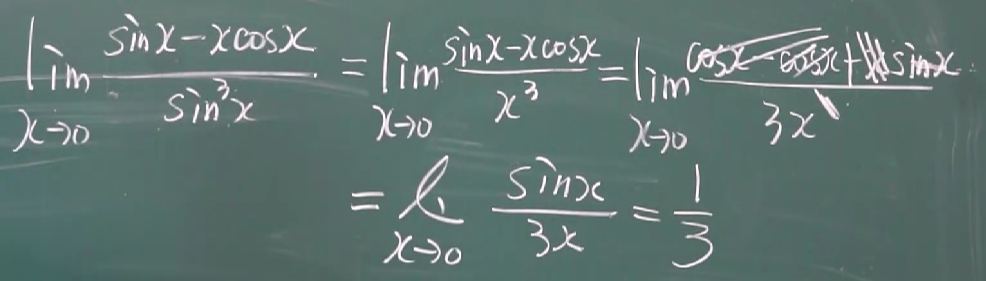 lim x→0 (sinx - xcosx)/(sin³x) = lim x→0 (sinx - xcosx)/(x³) = lim x→0 (cosx - cosx + sinx)/(3x)
= l x→0 (sinx)/(3x) = 1/3